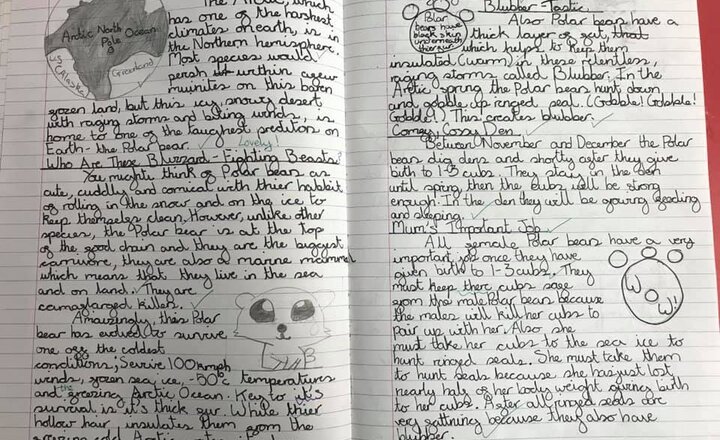 The Arctic, which
has one of the harshest
climates on earth, is in
the Northern hemisphere.
Most species would
perish within a few
muinites on this baren
Arctic Ocean
North Pole
USA (Alaska)
Greenland
frozen land, but this icy, snowy desert
with raging storms and biting winds, is
home to one of the taughest preditors on
Earth - the Polar bear.
Lovely!
Who Are These Blizzard-Fighting Beasts?
You mighte think of Polar bears as
cute, cuddly and comical with thier habbit
of rolling in the snow and on the ice to
keep themseles clean. However, unlike other
species, the Polar bear is at the top
of the food chain and they are the biggest
carnivore, they are also a marine mammel
which means that they live in the sea
and on land. They are
camaflarged killers.
Amaizingly, this Polar
bear has evolved to survive
one off the coldest
conditions; Servive 100kmph
winds, frozen sea, ice, -50°c temperatures
and the freezing Arctic Ocean. Key to it's
survival is it's thick fur. While thier
hollow hair insulates them from the
freezing cold Arctic
Blubber-Tastic.
Polar bears have black skin underneath thier fur
Also Polar bears have a
thick layer of fat, that
which helps to keep them
insulated (warm) in these relentless,
raging storms called Blubber. In the
Arctic spring the Polar bears hunt down
and gobble up ringed seal. (Gobble! Gobble!
Gobble!) This creates blubber.
Comey, Cossy Den
Between November and December the Polar
bears dig dens and shortly after they give
birth to 1-3 cubs. They stay in the den
until spring, then the cubs will be strong
enough. In the den they will be growing feeding
and sleeping.
Mum's Important Job
All female Polar bears have a very
important job once they have
given birth to 1-3 cubs. They
must keep there cubs safe
from the male Polar bears because
the males will kill her cubs to
pair up with her. Also she
must take her cubs to the sea ice to
hunt ringed seals. She must take them
to hunt seals because she has just lost
nearly half of her body weight giving birth
to her cubs. After all ringed seals are
very fattning because they also have
blubber.